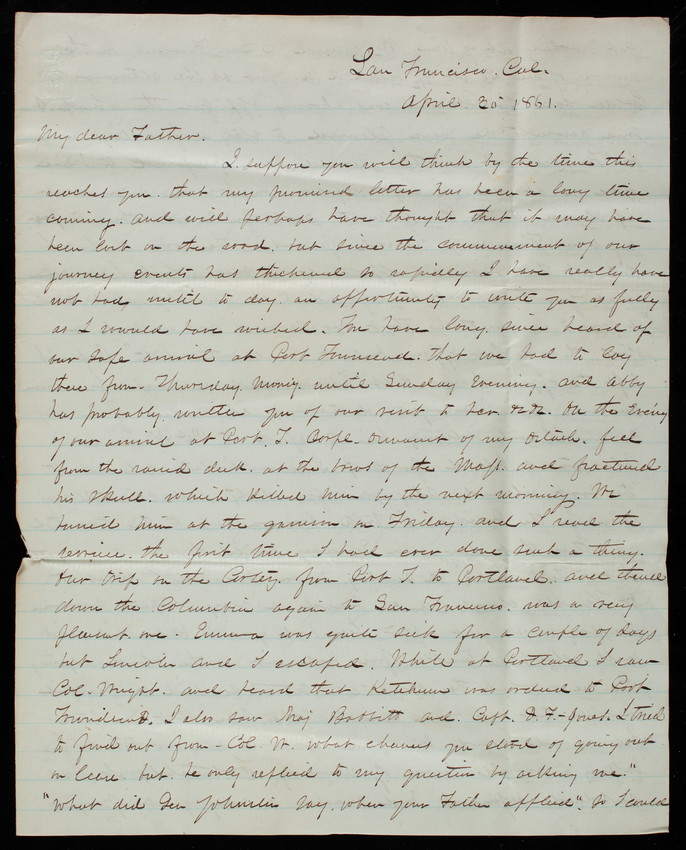 San Francisco. Cal.
April 20 1861.
My dear Father.
I suppose you will think by the time this
reaches you that my promised letter has been a long time
coming. and will perhaps have thought that it may have
been lost on the road. but since the commencement of our
journey events has thickened so rapidly I have really have
not had, until to day. an opportunity to write you as fully
as I would have wished. You have long since heard of
our safe arrival at Port Townsend. that we had to lay
there from Thursday Morng until Sunday Evening. and Abby
has probably written you of our visit to her. &c &c. On the Eveng
of our arrival at Port. T. Corpl. of my detach. fell
from the raised deck. at the bows of the Mass. and fractured
his skull. which killed him by the next morning. We
buried him at the garrison on Friday. and I read the
service. the first time I had ever done such a thing.
Our trip on the Cortez. from Port T. to Portland. and thence
down the Columbia again to San Francisco. was a very
pleasant one. Emma was quite sick for a couple of days
but Lincoln and I escaped. While at Portland I saw
Col. Wright. and heard that Ketchum was ordered to Port
Townsend. I also saw Maj Babbitt and. Capt. D. F. Jones. I tried
to find out from Col. W. what chances you stood of going out
on leave. but. he only replied to my question by asking me."
"What did Gen Johnston say. when your Father applied". So I could